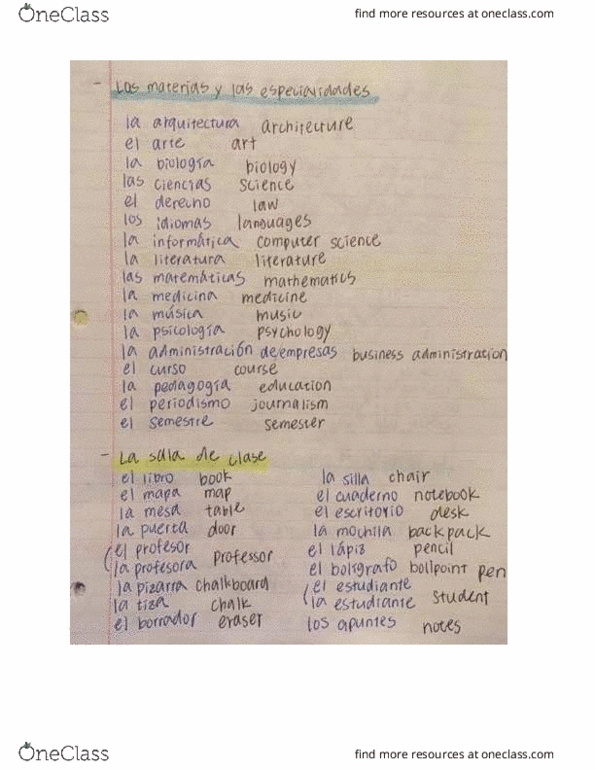 OneClass
find more resources at oneclass.com
- Las materias y las especialidades
la arquitectura architecture
el arte art
la biología biology
las ciencias science
el derecho law
los idiomas languages
la informática computer science
la literatura literature
las matemáticas mathematics
la medicina medicine
la música music
la psicología psychology
la administración de empresas business administration
el curso course
la pedagogía education
el periodismo journalism
el semestre semester
- La sala de clase
el libro book
el mapa map
la mesa table
la puerta door
el profesor
la profesora professor
la pizarra chalkboard
la tiza chalk
el borrador eraser
la silla chair
el cuaderno notebook
el escritorio desk
la mochila backpack
el lápiz pencil
el bolígrafo bollpoint pen
el estudiante
la estudiante student
los apuntes notes
OneClass
find more resources at oneclass.com